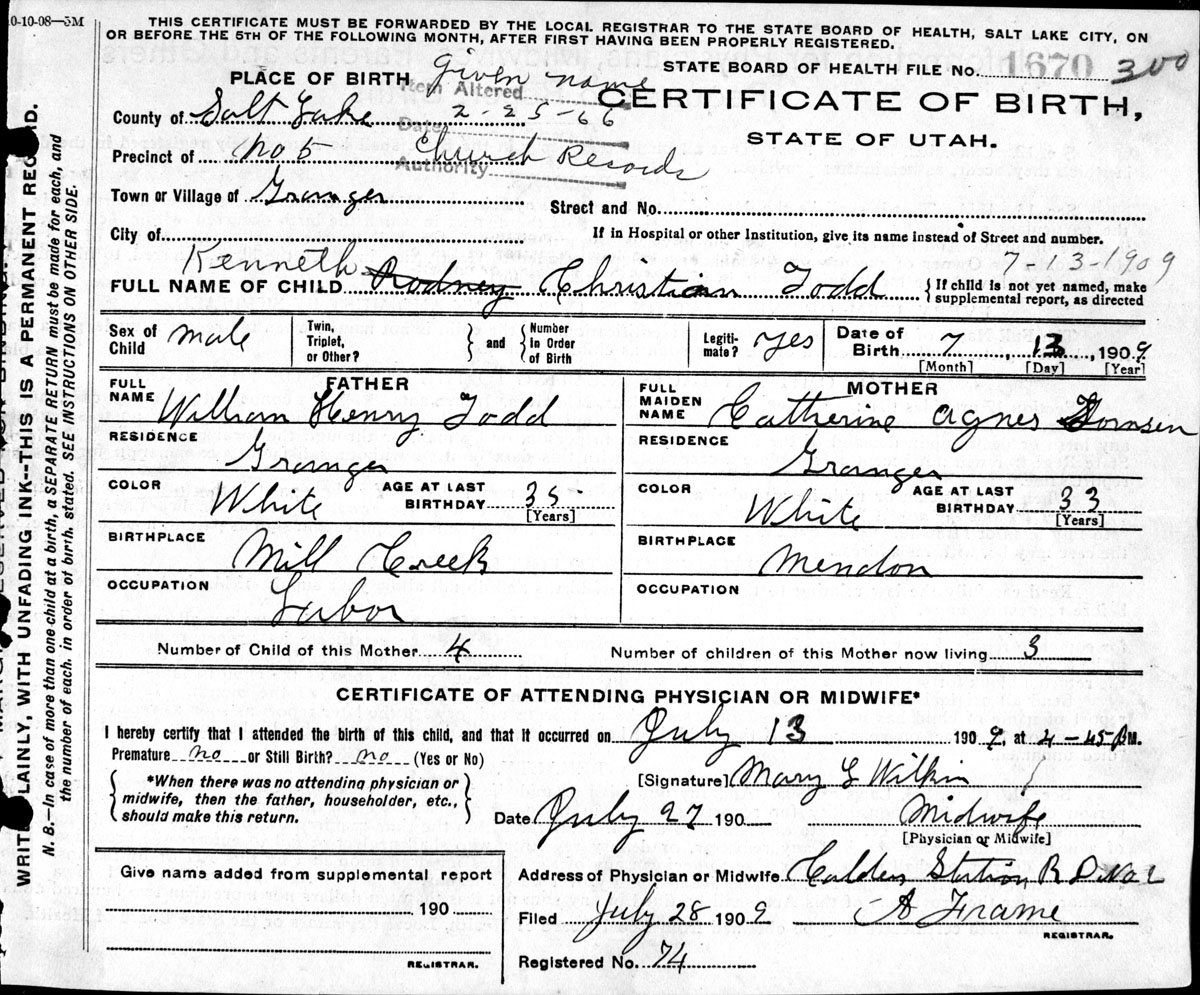 0-10-08—3M
THIS CERTIFICATE MUST BE FORWARDED BY THE LOCAL REGISTRAR TO THE STATE BOARD OF HEALTH, SALT LAKE CITY, ON
OR BEFORE THE 5TH OF THE FOLLOWING MONTH, AFTER FIRST HAVING BEEN PROPERLY REGISTERED.
STATE BOARD OF HEALTH FILE NO. 1670 300
PLACE OF BIRTH
Item Altered given name
CERTIFICATE OF BIRTH,
County of Salt Lake
Date 2-25-66
STATE OF UTAH.
Precinct of No 8
Authority Church Records
Town or Village of Granger
Street and No.
City of
If in Hospital or other Institution, give its name instead of Street and number.
7-13-1909
Kenneth
FULL NAME OF CHILD Rodney Christian Todd
If child is not yet named, make
supplemental report, as directed
Sex of Child male
Twin, Triplet, or Other? and Number In Order of Birth
Legitimate? Yes
Date of Birth 7, 13, 1909
[Month] [Day] [Year]
FATHER
FULL NAME William Henry Todd
RESIDENCE Granger
COLOR White
AGE AT LAST BIRTHDAY 35
[Years]
BIRTHPLACE Mill Creek
OCCUPATION Labor
MOTHER
FULL MAIDEN NAME Catherine Agnes Sornsen
RESIDENCE Granger
COLOR White
AGE AT LAST BIRTHDAY 33
[Years]
BIRTHPLACE Mendon
OCCUPATION
Number of Child of this Mother 4
Number of children of this Mother now living 3
CERTIFICATE OF ATTENDING PHYSICIAN OR MIDWIFE*
I hereby certify that I attended the birth of this child, and that it occurred on July 13 1909, at 4-45 M.
Premature no or Still Birth? no (Yes or No)
*When there was no attending physician or
midwife, then the father, householder, etc.,
should make this return.
[Signature] Mary G Wilkin
Date July 27 190
Midwife
[Physician or Midwife]
Give name added from supplemental report
190
REGISTRAR.
Address of Physician or Midwife Calders Station R D No 2
Filed July 28 1909
A Frame
REGISTRAR.
Registered No. 74
WRITE PLAINLY, WITH UNFADING INK--THIS IS A PERMANENT RECORD.
N. B.—In case of more than one child at a birth, a SEPARATE RETURN must be made for each, and
the number of each, in order of birth, stated. SEE INSTRUCTIONS ON OTHER SIDE.